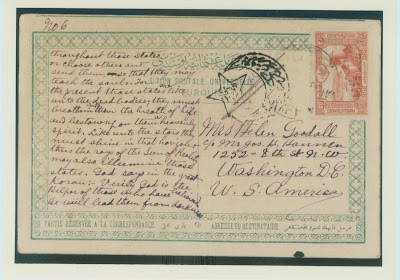 No 6
throughout those states
or choose others and
send them so that they may
teach the souls. For at
the present those states are like
unto the dead bodies; they must
breathe in them the breath of life
and bestow on them a heavenly
spirit. Like unto the stars they
must shine in that horizon
thus the rays of the Sun of Reality
may also illumine those
states. God says in the great
Koran: Verily God is the
helper of those who have believed
he will lead them from darkness
UNION POSTALE UNIVERSELLE
TURQUIE
Mrs Helen Goodall
c/o Mrs Jos. H. Hannen
1252 - 8th St. N.W.
Washington D.C.
U. S. America
PARTIE RÉSERVÉE A LA CORRESPONDANCE.
ADRESSE DU DESTINATAIRE.